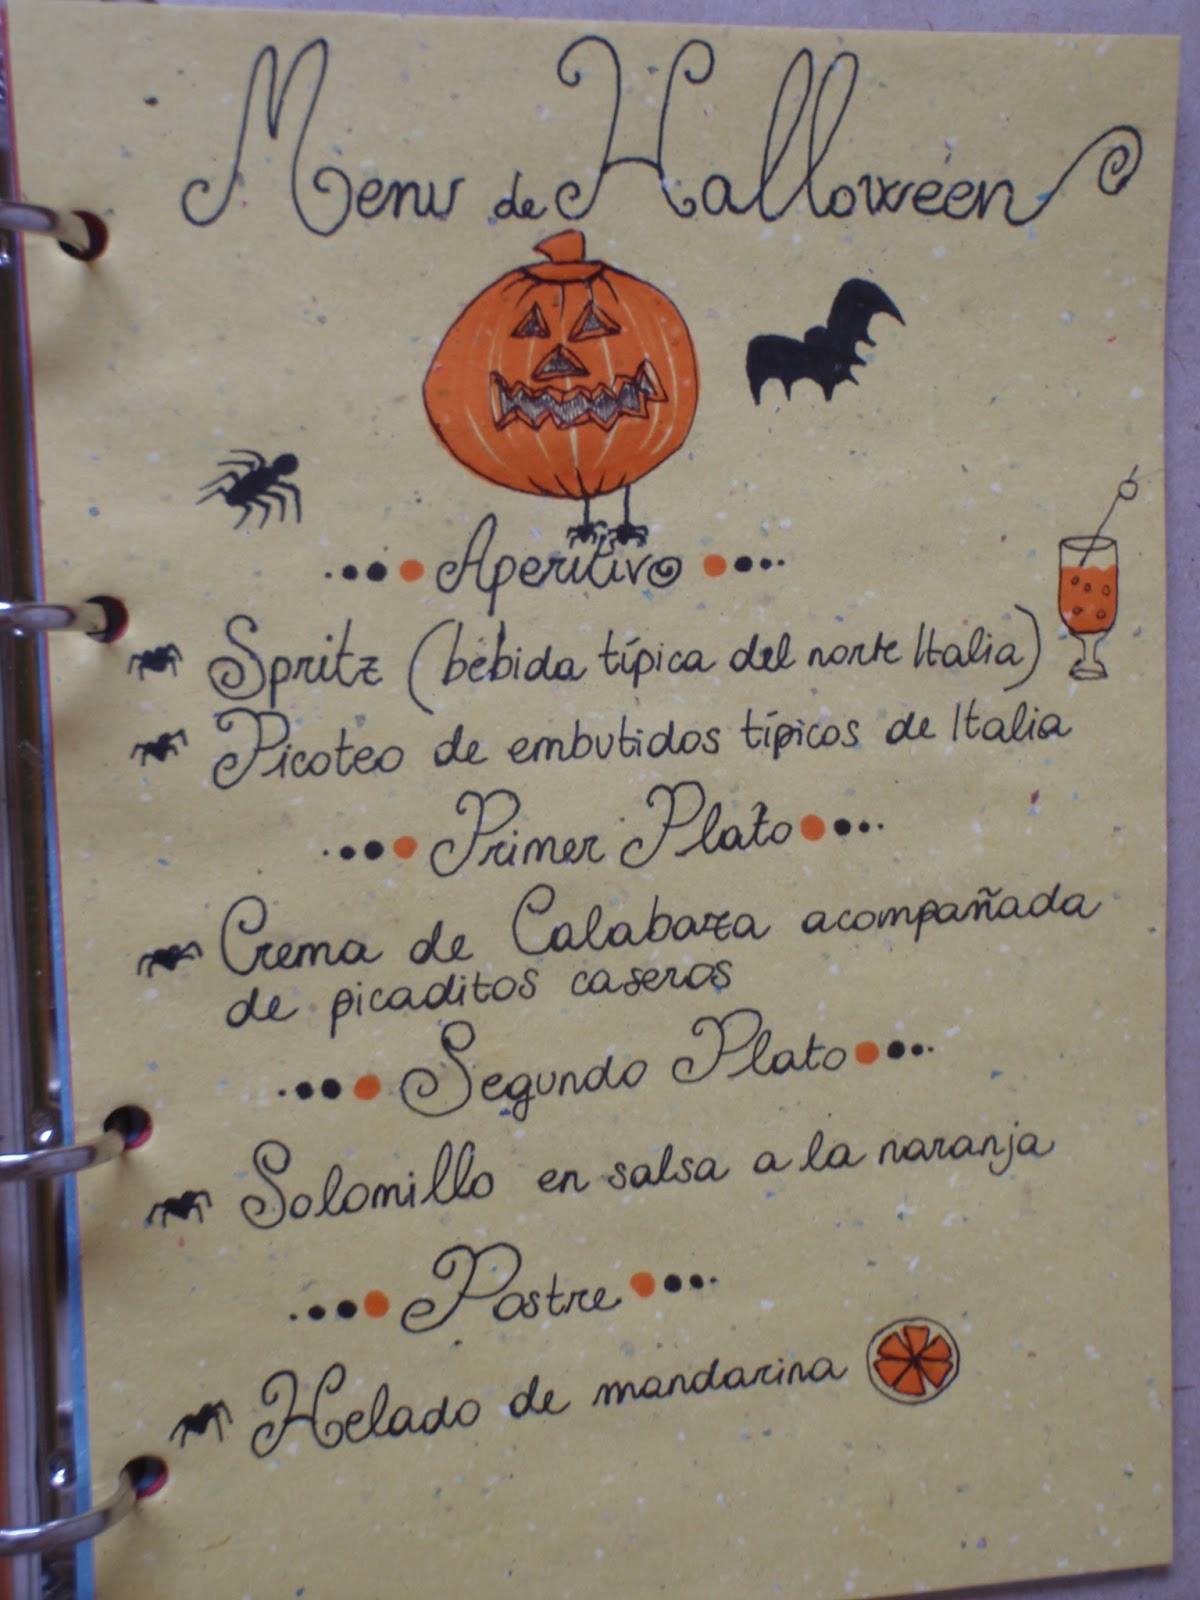 Menu de Halloween
Aperitivo
Spritz (bebida típica del norte Italia)
Picoteo de embutidos típicos de Italia
Primer Plato
Crema de Calabaza acompañada
de picaditos caseros
Segundo Plato
Solomillo en salsa a la naranja
Postre
Helado de mandarina